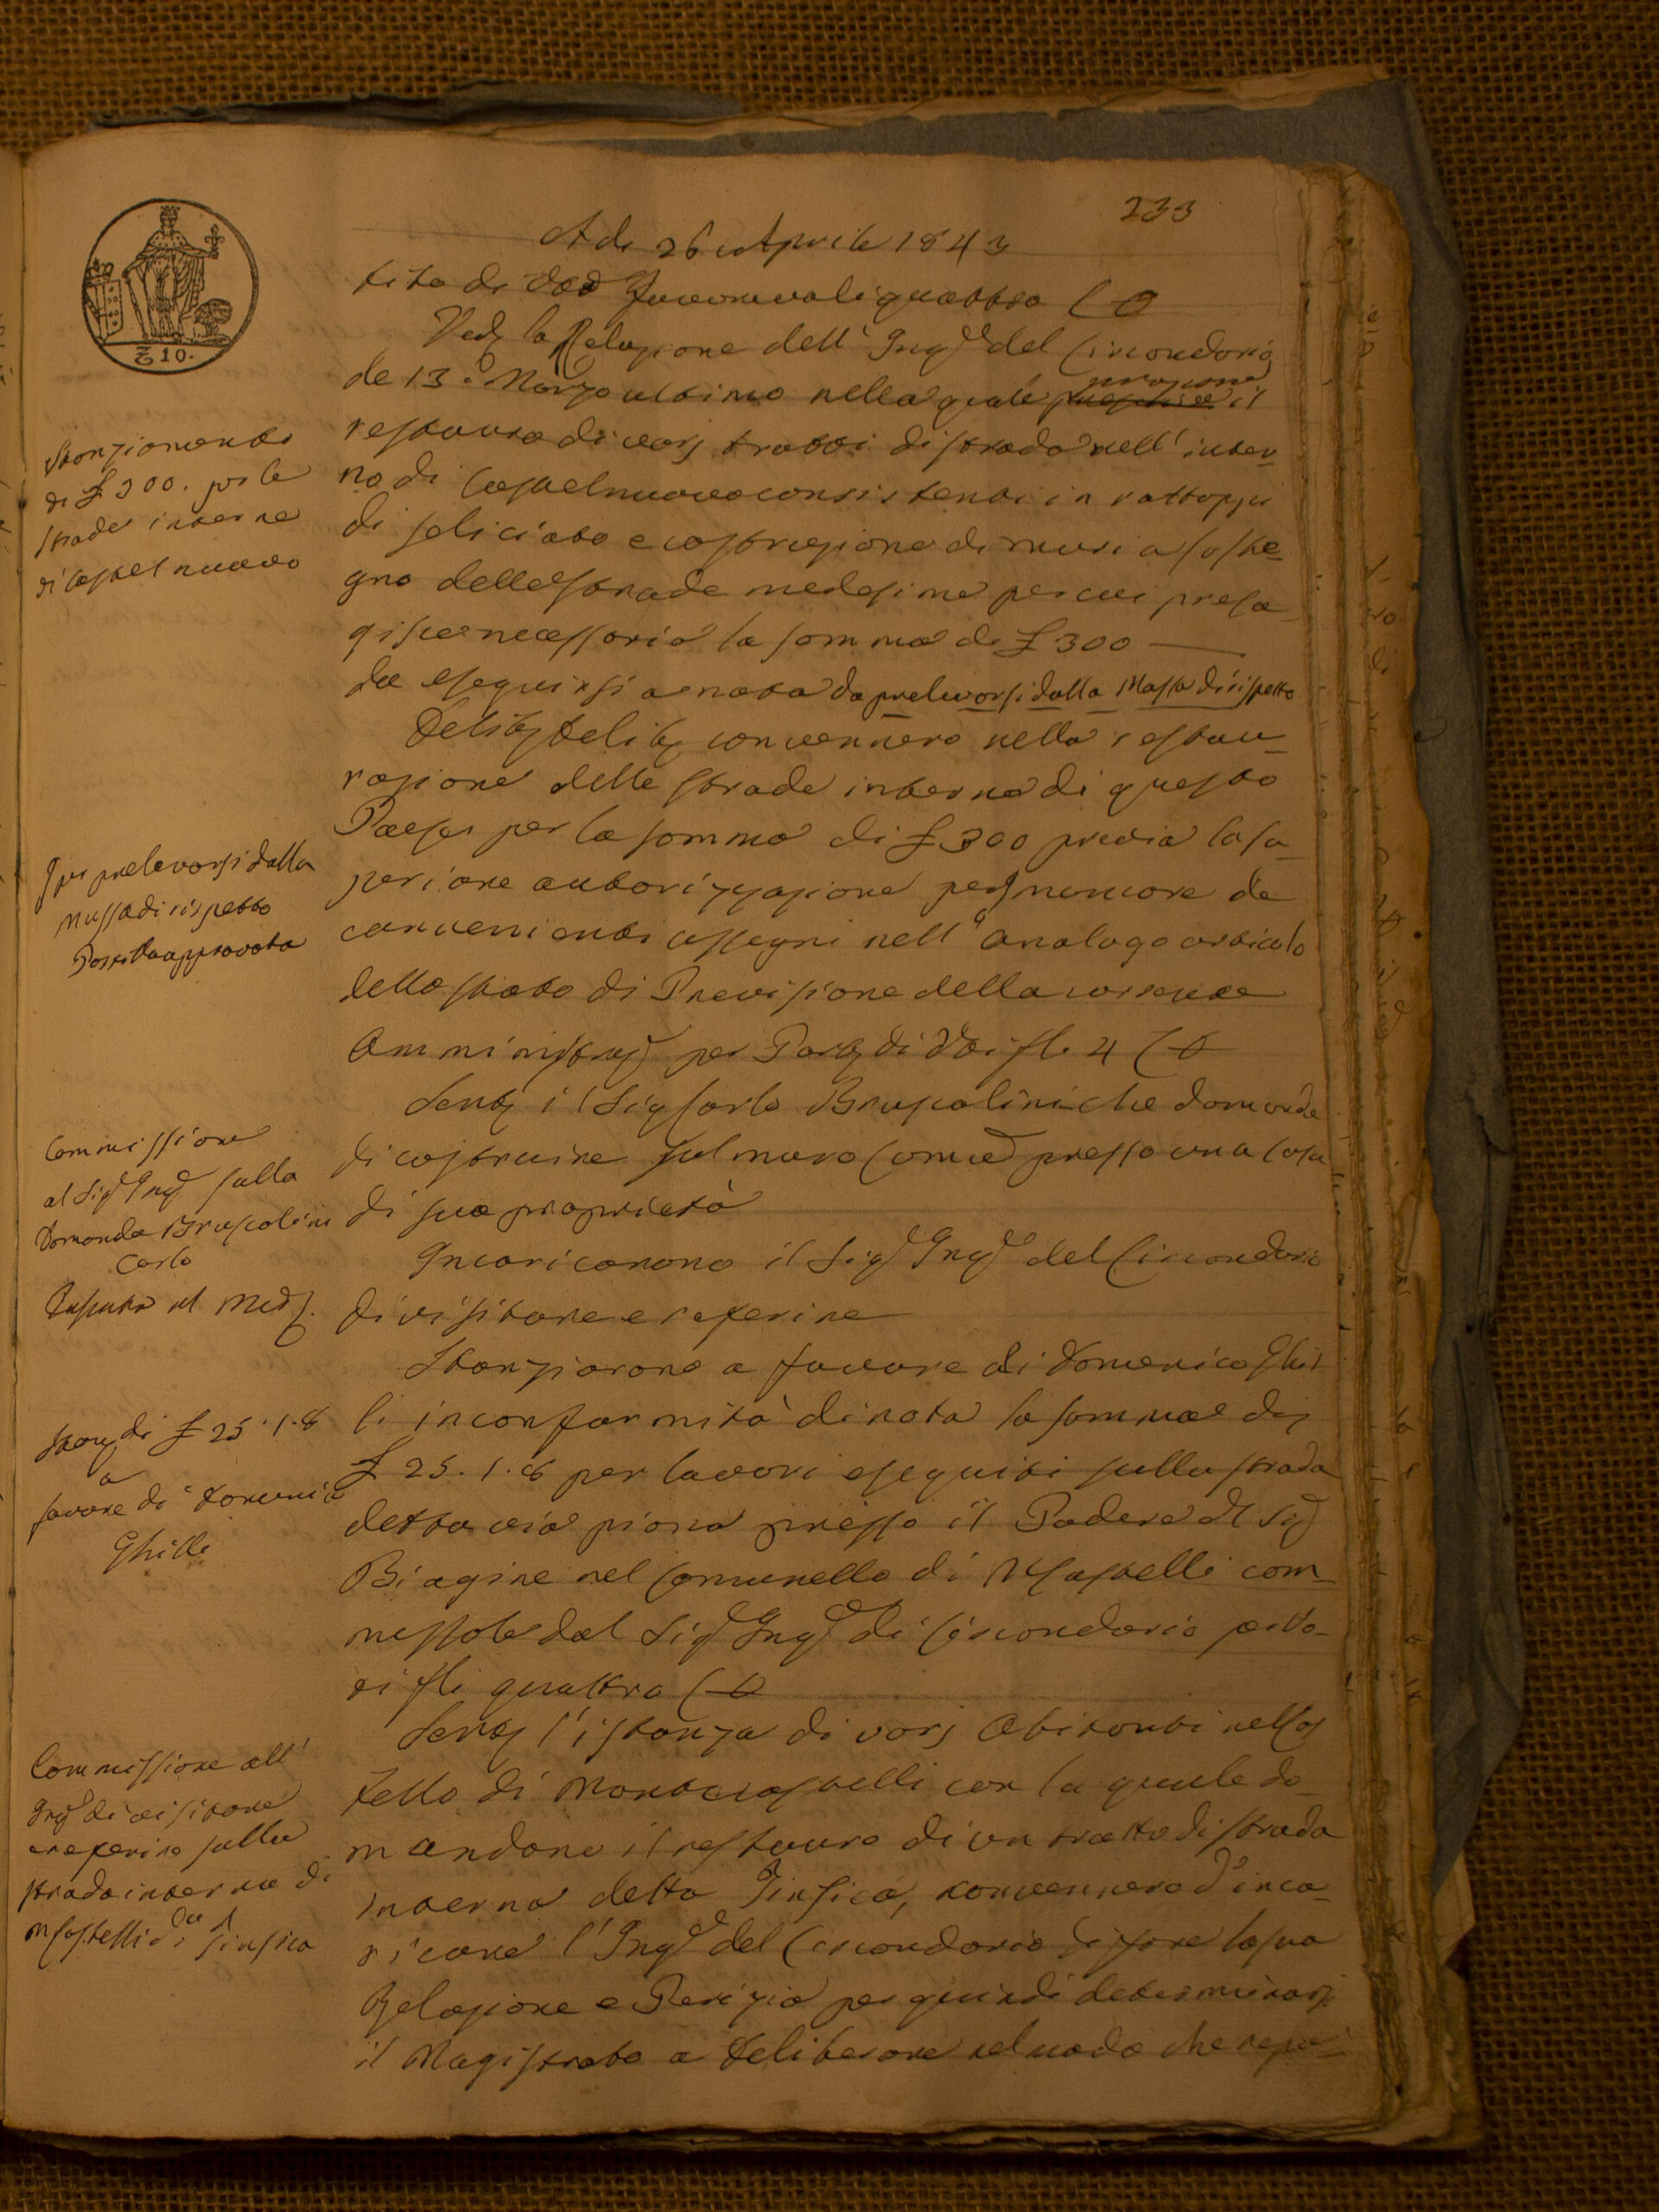 233
Adi 26 Aprile 1843
tito di Voti Favorevoli quattro
Ved. la Relazione dell' Ing.e del Circondario
de 13. Marzo ultimo nella quale propone il
restauro di varj tratti di strada nell' inter-
no di Castelnuovo consistenti in rattoppi
di seliciato e costruzione di muri a soste-
gno delle strade medesime per cui presa-
gisce necessaria la somma di £ 300
da eseguirsi a nota da prelevarsi dalla Massa di rispetto
Delib. Delib. convennero nella restau-
razione delle strade interne di questo
Paese per la somma di £ 300 previa la su-
periore autorizzazione per
convenienti assegni nell' analogo articolo
dello stato di Previsione della corrente
Amministraz. per Part. di Voti f. 4
Sent. il Sig. Carlo Bruscolini che domanda
di costruire sul muro Com. presso una Casa
di sua proprietà
Incaricarono il Sig. Ing.e del Circondario
di visitare e referire
Stanziarono a favore di Domenico Ghil
li in conformità di nota la somma di
£ 25.1.8 per lavori eseguiti sulla strada
detta via piana presso il Podere del Sig.
Biagini nel Comunello di M Castelli com-
messole dal Sig. Ing.e di Circondario per Vo-
ti f.li quattro
Sent. l'istanza di varj Abitanti nella
tello di Montecastelli con la quale do-
mandano il restauro di un tratto di strada
interna detta Pinsica, convennero d'inca-
ricare l' Ing.e del Circondario di fare la sua
Relazione e Perizia per quindi determinarsi
il Magistrato a deliberare nel modo che repu-
₤ 10.
Stanziamento
di £ 300. per le
strade interne
di Castelnuovo
per prelevarsi dalla
massa di rispetto
Postilla approvata
Commissione
al Sig. Ing.e sulla
Domanda Bruscolini
Carlo
al Med.
Stanz. di £ 25.1.8
a
favore di Domenico
Ghilli
Commissione all'
Ing.e di visitare
e referire sulla
strada interna di
M Castelli di Pinsica